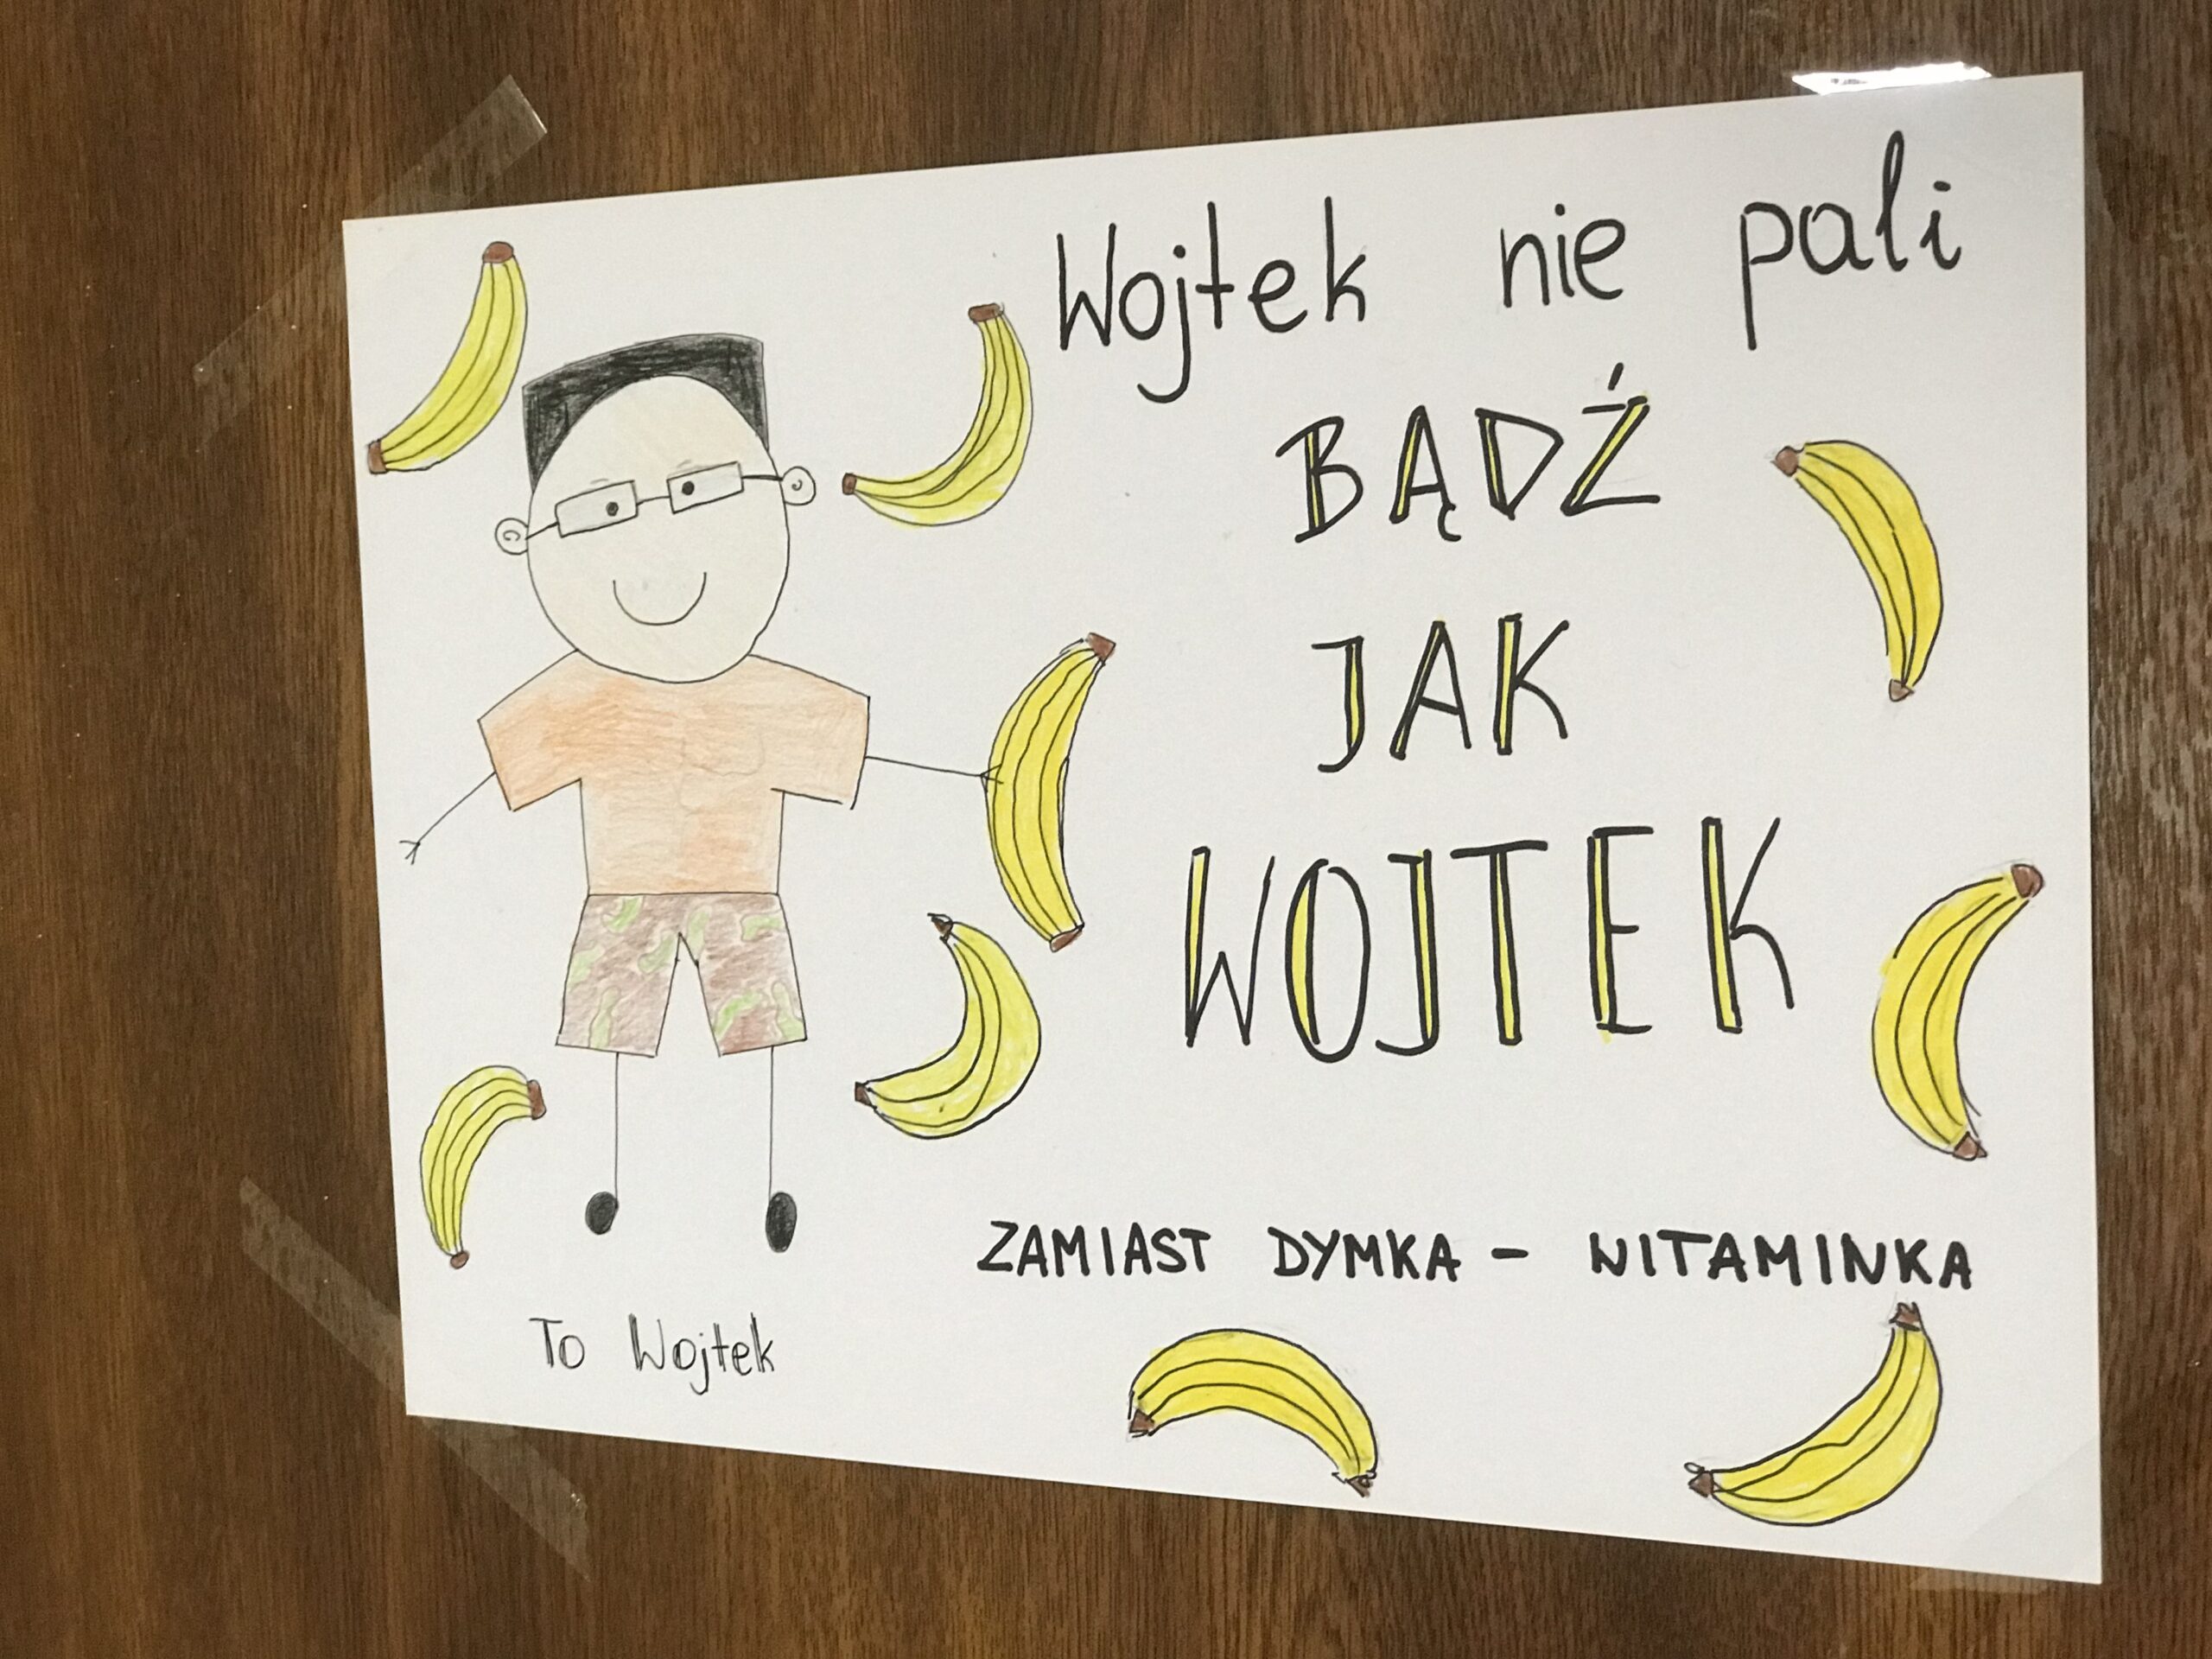 Wojtek nie pali
BĄDŹ
JAK
WOJTEK
ZAMIAST DYMKA - WITAMINKA
To Wojtek